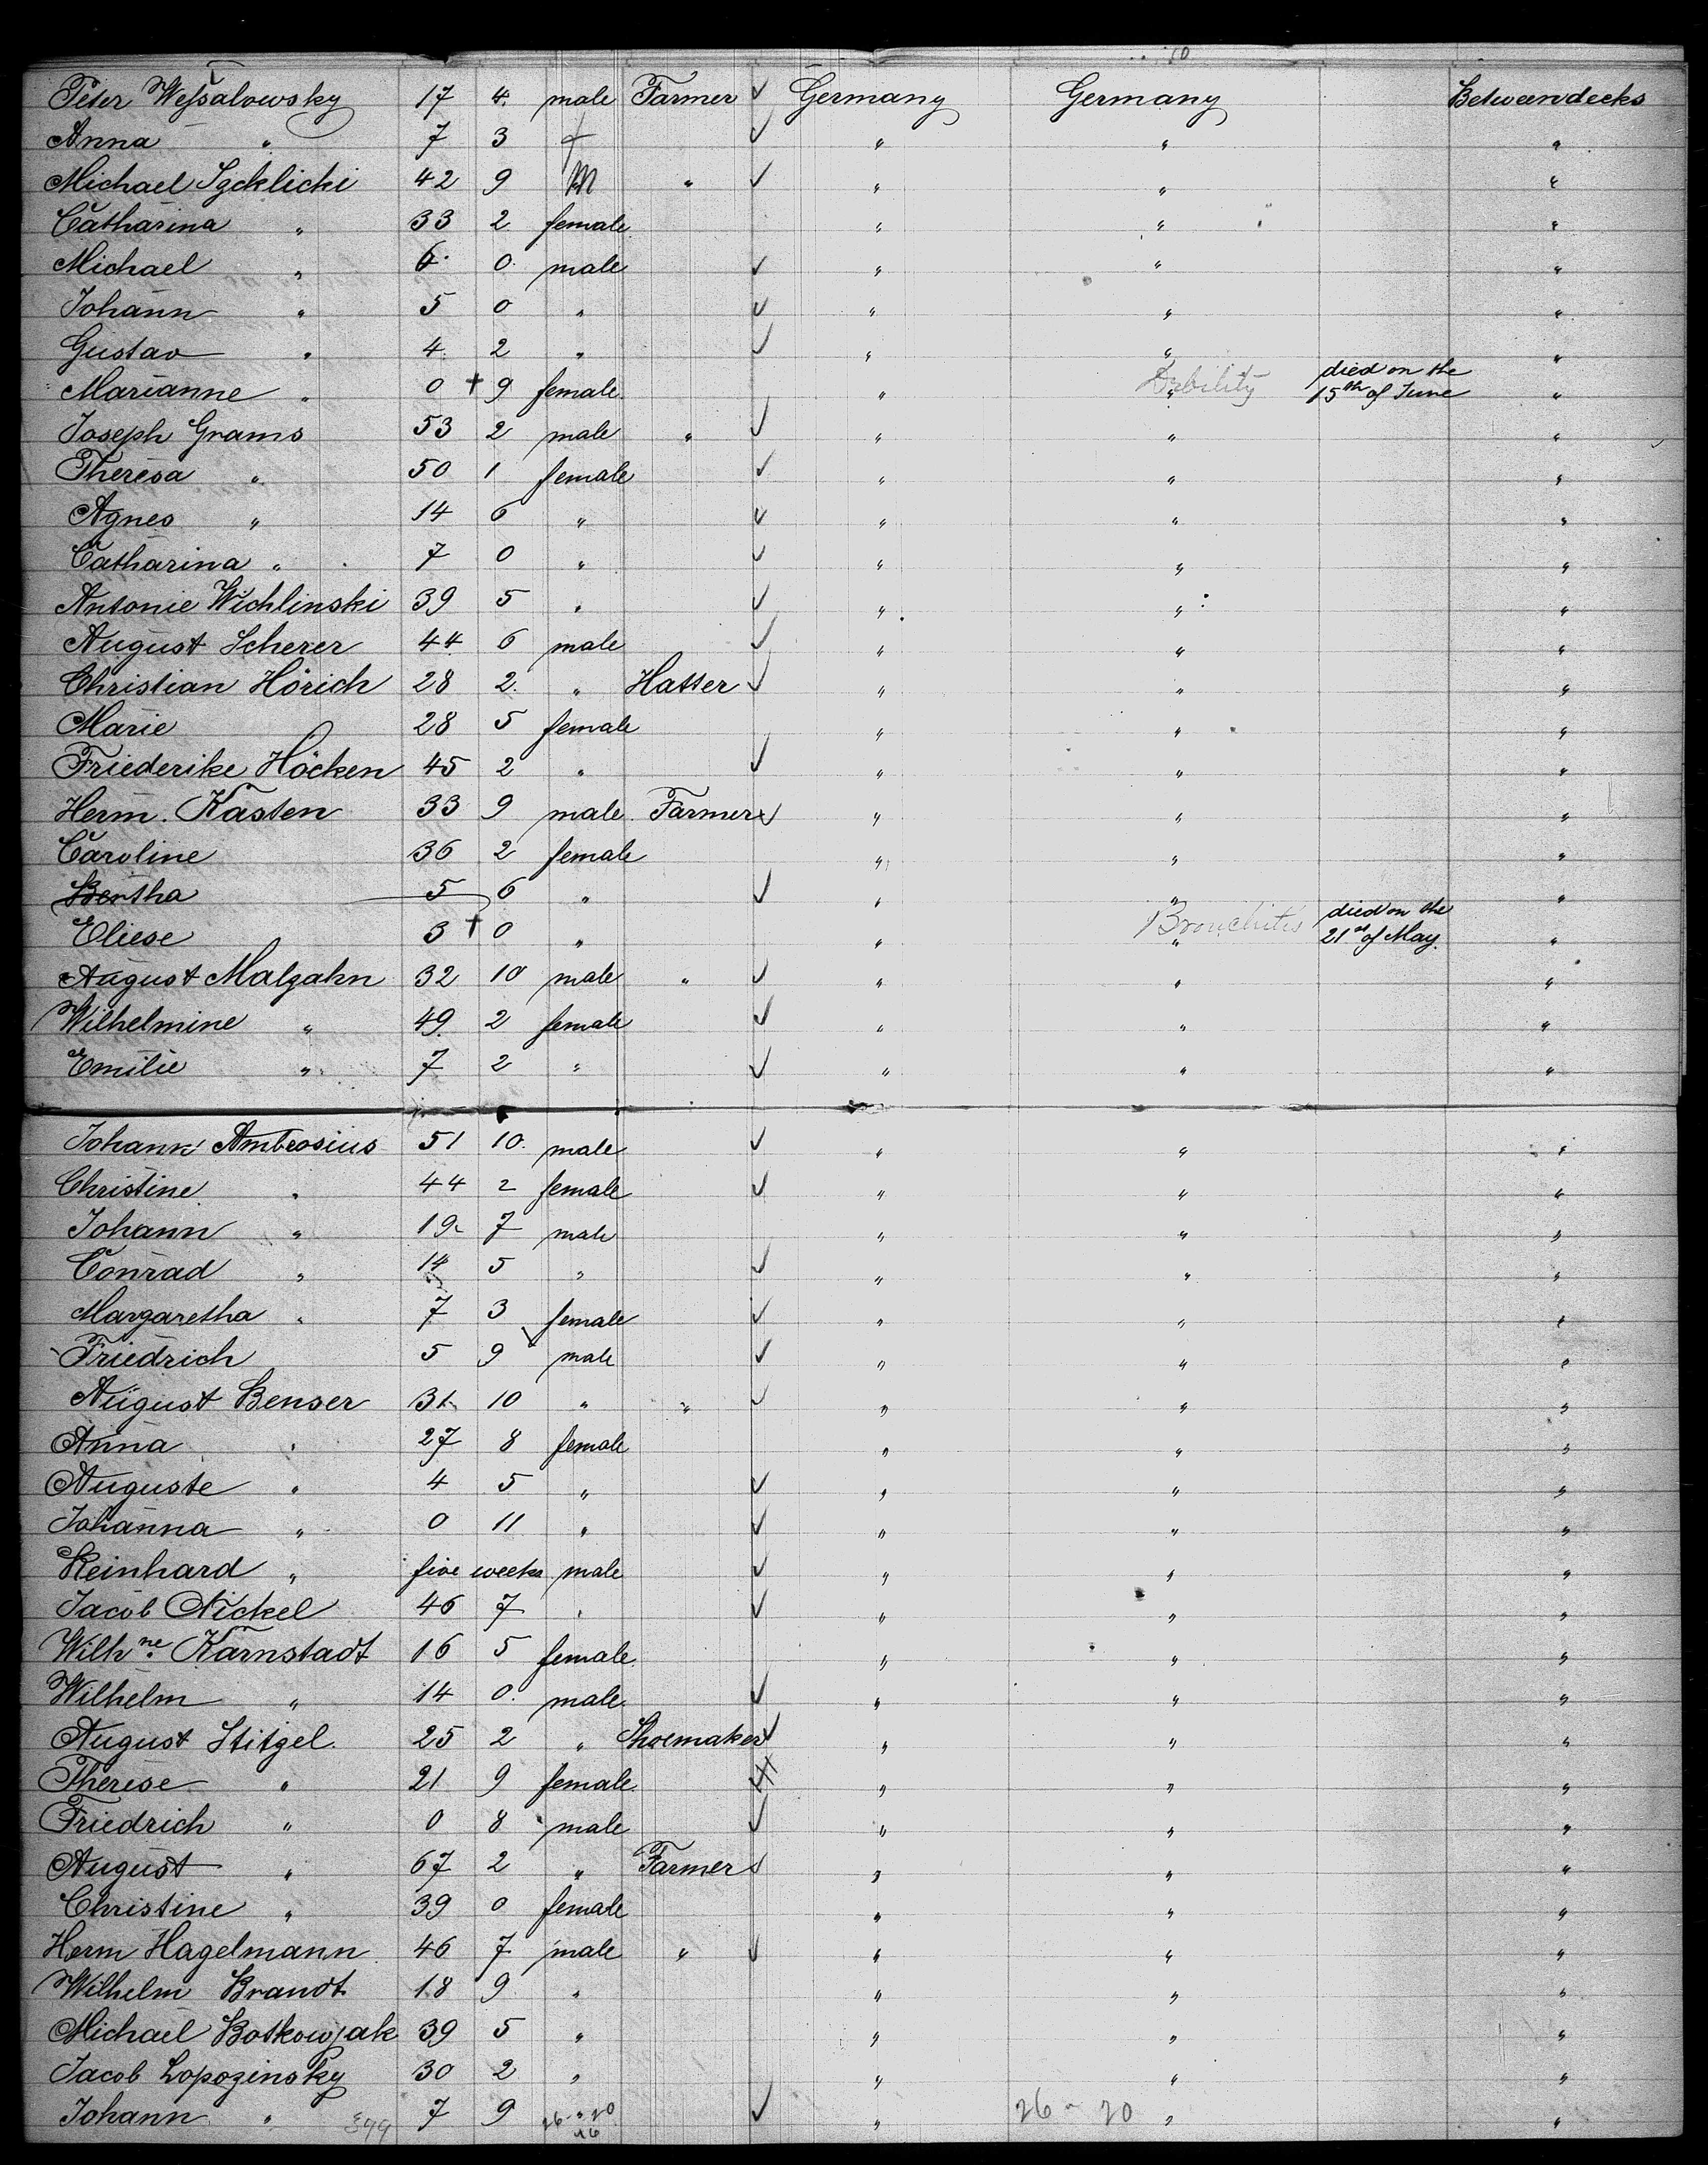 Peter Weſsalowsky 17 4. male Farmer ✓ Germany Germany Betweendecks
Anna " 7 3 f ✓ " " "
Michael 42 9 M " ✓ " " "
Catharina " 33 2 female " " "
Michael " 6 0. male ✓ " " "
Johann " 5 0 " ✓ " " "
Gustav " 4. 2 " ✓ " " "
Marianne " 0 † 9 female " Debility " died on the 15th of June "
Joseph Grams 53 2 male " ✓ " " "
Theresa " 50 1 female ✓ " " "
Agnes " 14 6 " ✓ " " "
Catharina " 7 0 " ✓ " " "
Antonie Wichlinski 39 5 " ✓ " " "
August Scherer 44 6 male ✓ " " "
Christian Hörich 28 2. " Hatter ✓ " " "
Marie 28 5 female " " "
Friederike Höcken 45 2 " ✓ " " "
Herm. Kasten 33 9 male. Farmer ✓ " " "
Caroline 36 2 female " " "
Bertha 5 6 " ✓ " " "
Eliese 3 † 0 " " Bronchitis " died on the 21st of May. "
August Malzahn 32 10 male " ✓ " " "
Wilhelmine " 49. 2 female ✓ " " "
Emilie " 7 2 " ✓ " " "
Johann Ambrosius 51 10. male ✓ " " "
Christine " 44 2 female ✓ " " "
Johann " 19 7 male " " "
Conrad " 14 5 " ✓ " " "
Margaretha " 7 3 female ✓ " " "
Friedrich 5 9 male ✓ " " "
August Benser 31 10 " " ✓ " " "
Anna " 27 8 female " " "
Auguste " 4 5 " ✓ " " "
Johanna " 0 11 " ✓ " " "
Reinhard " five weeks male ✓ " " "
Jacob Nickel 46 7 " ✓ " " "
Wilhne. Karnstadt 16 5 female " " "
Wilhelm " 14 0. male ✓ " " "
August Stitzel 25 2 " Shoemaker ✓ " " "
Therese " 21 9 female " " "
Friedrich " 0 8 male ✓ " " "
August " 67 2 " Farmer ✓ " " "
Christine " 39 0 female " " "
Herm Hagelmann 46 7 male " ✓ " " "
Wilhelm Brandt 18 9 " " " "
Michael Botkowjak 39 5 " " " "
Jacob Lopozinsky 30 2 " " " "
Johann " 7 9 26 - 20 ✓ " 26 - 20 " "